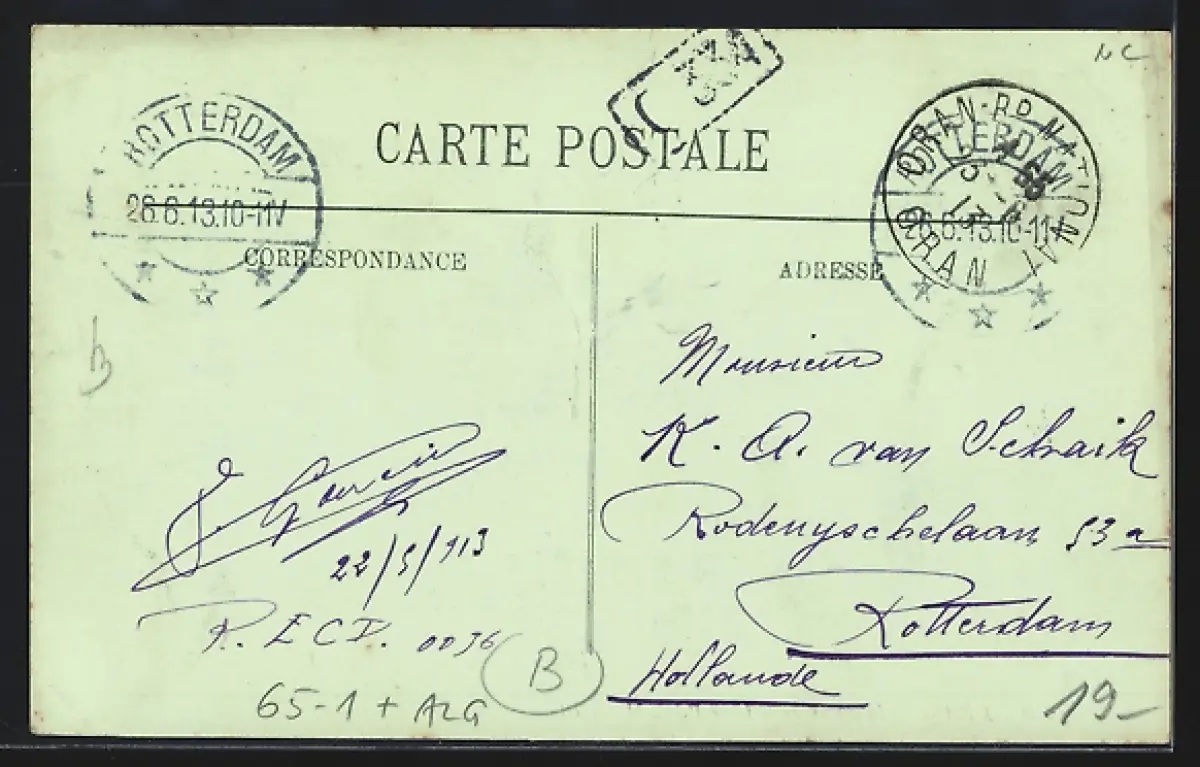 CARTE POSTALE
ROTTERDAM
26.6.13.10-11V
ORAN-RP NATIONAL
ORAN
ROTTERDAM
26.6.13.10-11V
CORRESPONDANCE
ADRESSE
Monsieur
K. A. van Schaik
Rodenyschelaan 53a
Rotterdam
Hollande
22/5/913
65-1 + ALG
B
19-